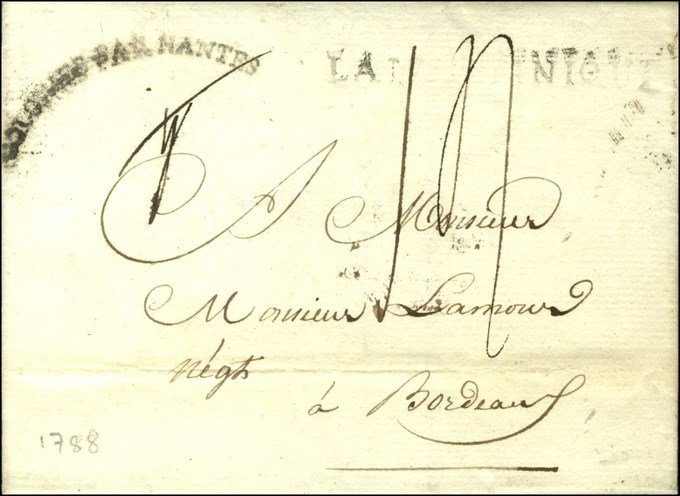 COLONIES PAR NANTES
LA MARTINIQUE
A Monsieur
Monsieur Lamour
négt
à Bordeaux
1788